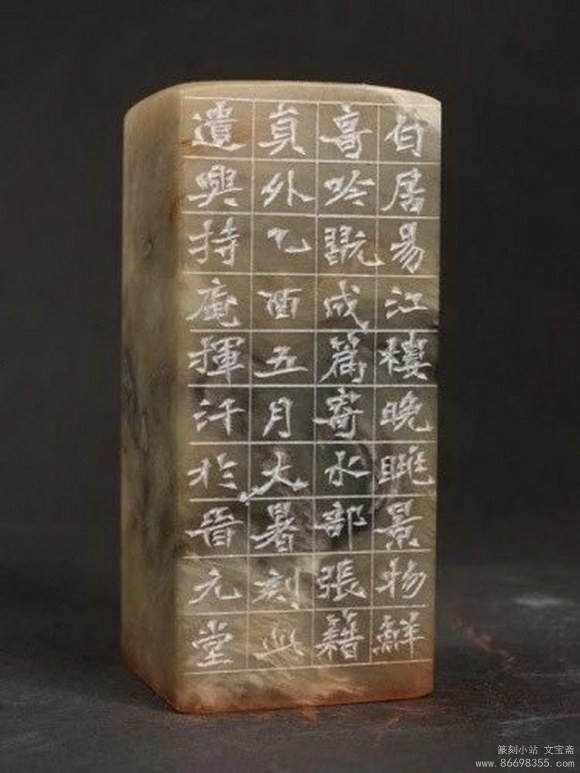 白居易江樓晚眺景物鮮
奇吟翫成篇寄水部張籍
員外乙酉五月大暑刻此
遺興持庵揮汗於晉元堂
篆刻小站 文宝斋
www.86698355.com